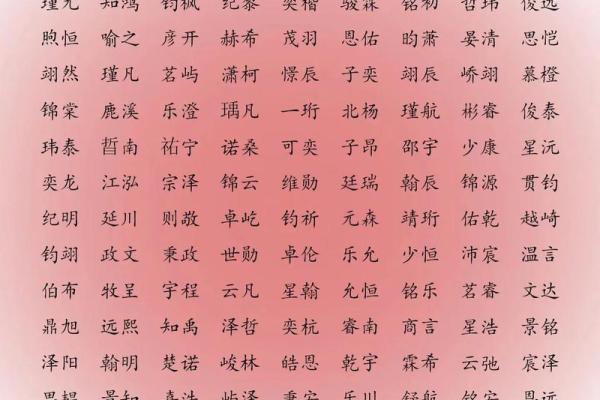 瑾允 知鸿 钧枫 纪泰 奕楷 骏霖 铭初 哲玮 俊远
煦恒 喻之 彦开 赫希 茂羽 恩佑 昀萧 晏清 思恺
翊然 瑾凡 茗屿 潇柯 憬辰 子奕 翊辰 峤翊 慕橙
锦棠 鹿溪 乐澄 瑀凡 一珩 北杨 瑾航 彬睿 俊泰
玮泰 晢南 祐宁 诺桑 可奕 子昂 邵宇 少康 星沅
奕龙 江泓 宗泽 锦云 维勋 廷瑞 翰辰 锦源 贯钧
纪明 延川 则敬 卓屹 钧祈 元森 靖珩 佑乾 越崎
钧翊 政文 秉政 世勋 卓伦 乐允 少恒 沛宸 温言
伯布 牧呈 宇程 云凡 星翰 允恒 铭乐 茗睿 文达
鼎旭 远熙 知禹 泽哲 奕杭 睿南 商言 星浩 景铭
泽阳 翰明 楚诺 峻林 皓恩 乾宇 霖希 云弛 宸泽
景知 屿泽 乐川 恩远